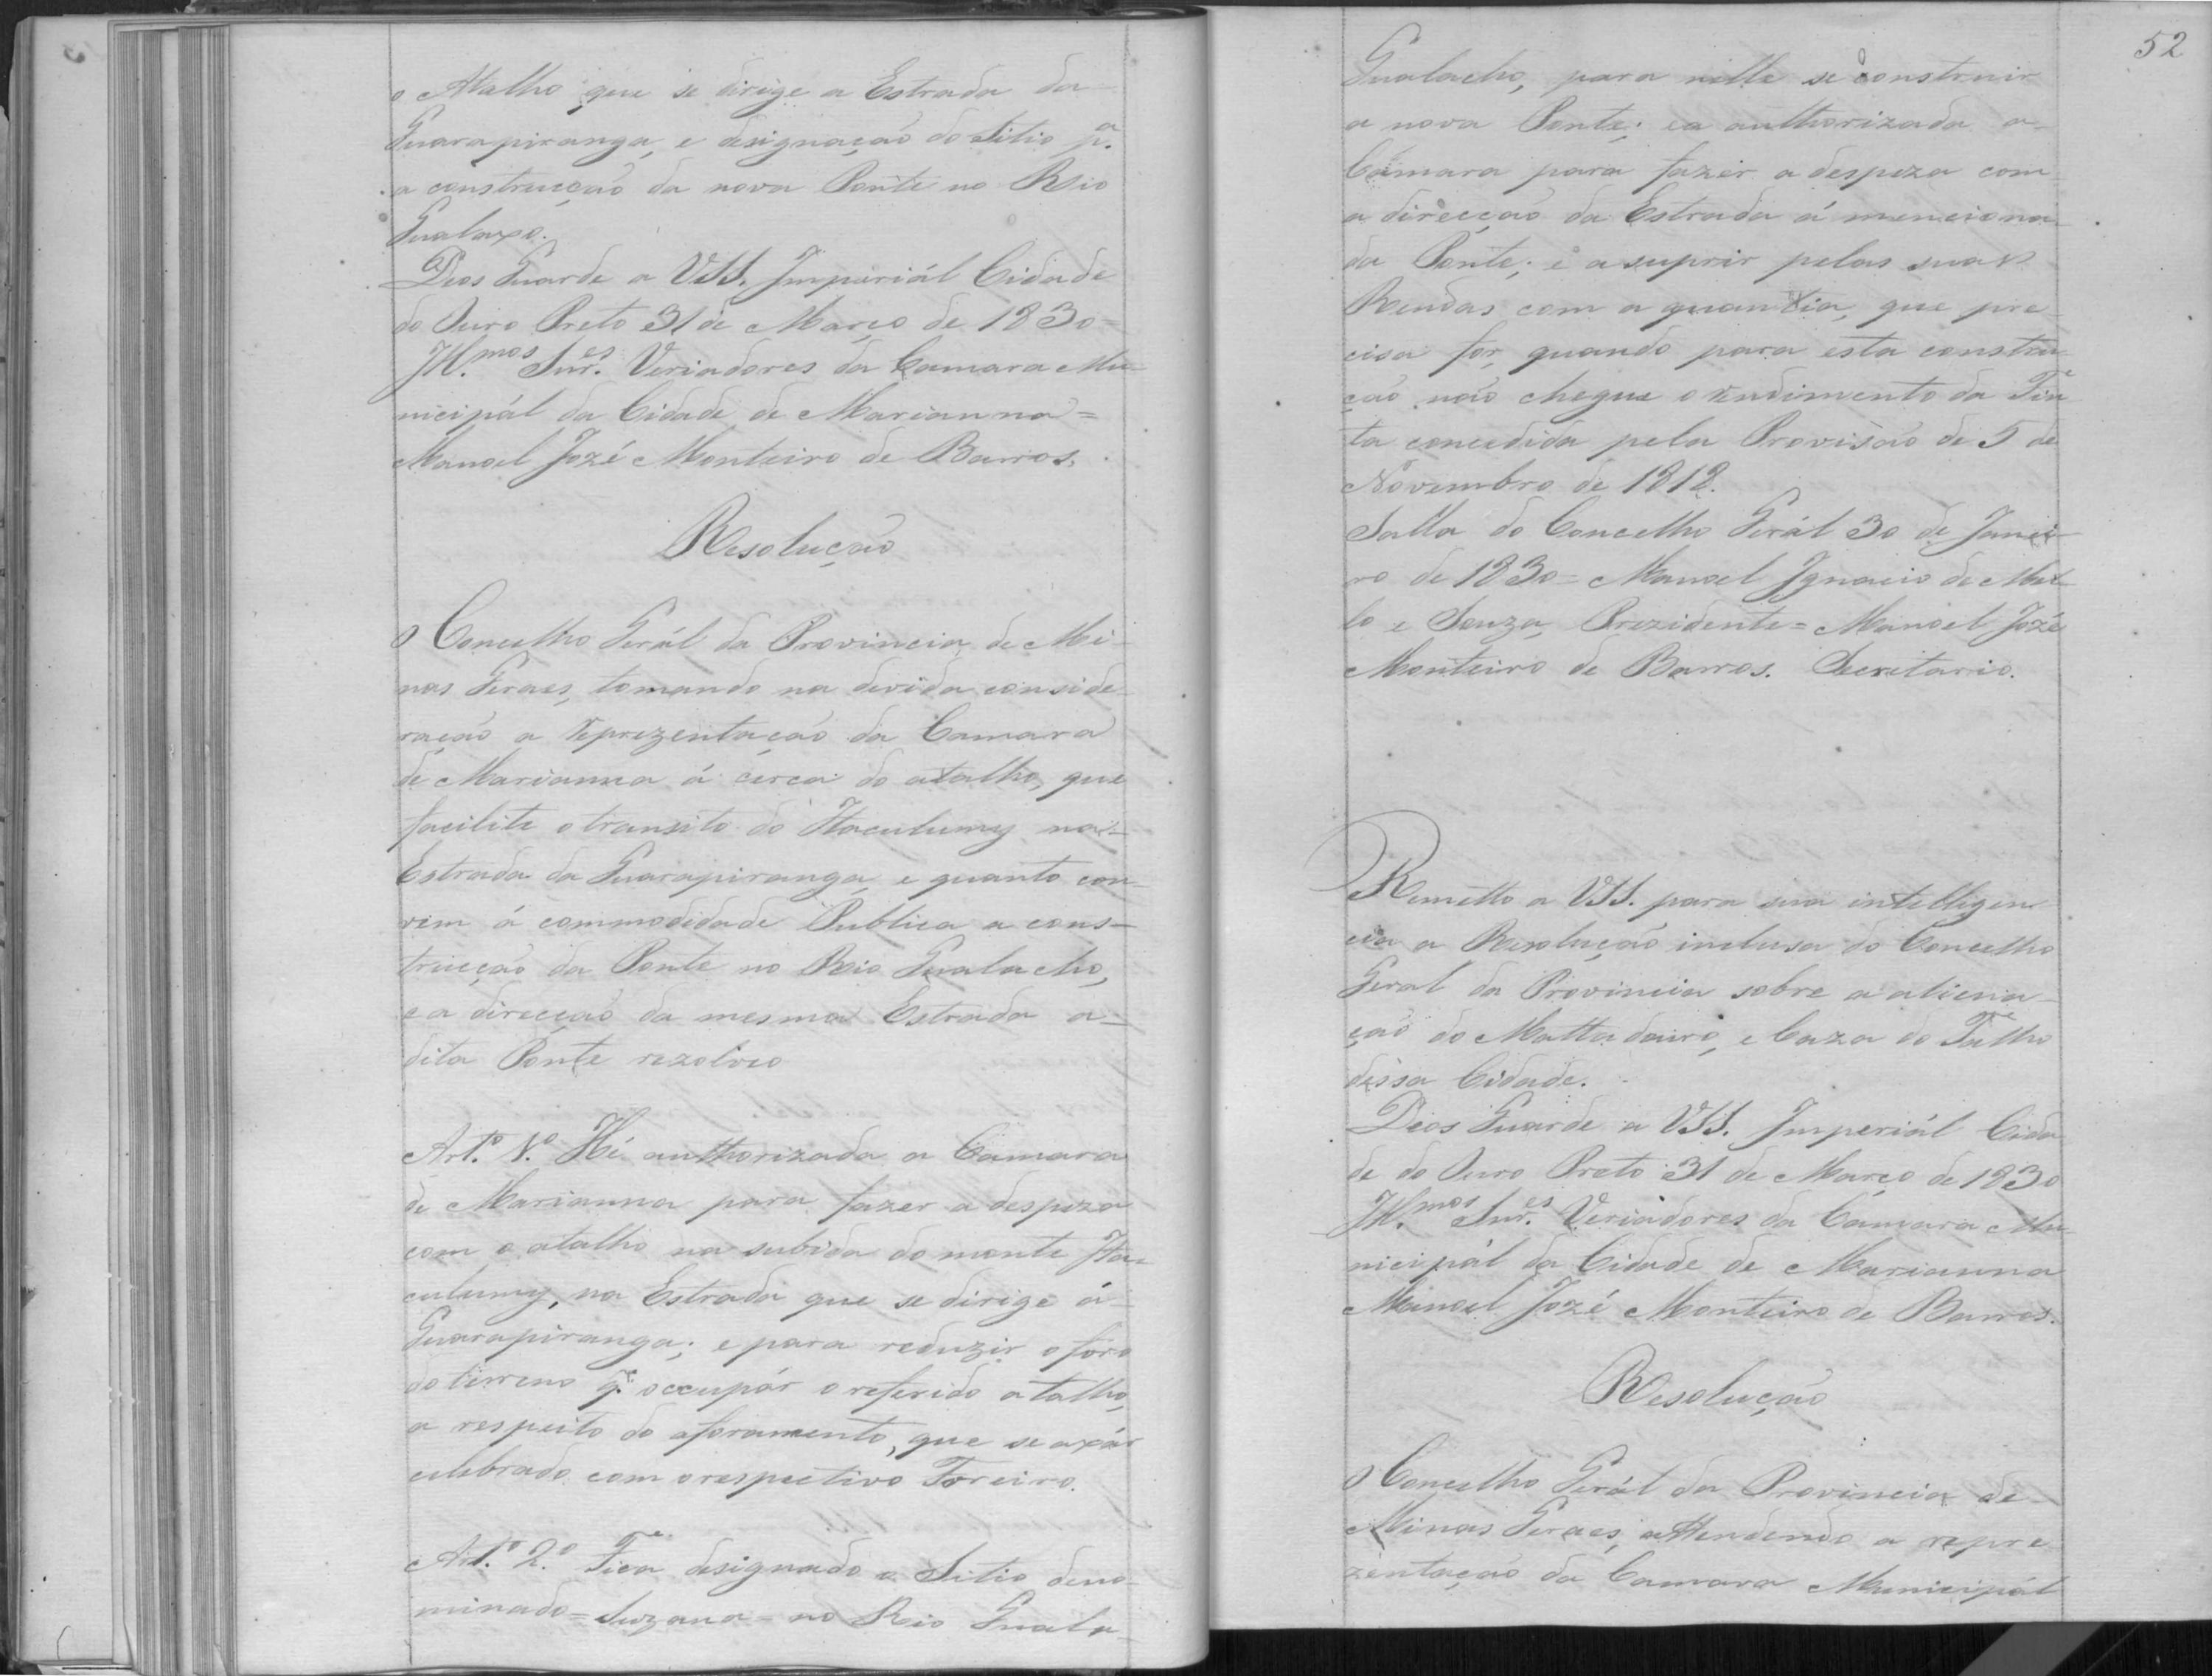 o Atalho que se dirige a Estrada da
Guarapiranga, e designação do Sitio p.ª
a construcção da nova Ponte no Rio
Gualaxo.
Deos Guarde a VSS. Imperiál Cidade
do Ouro Preto 31 de Março de 1830 =
Ill.mos Snr.es Veriadores da Camara Mu-
nicipál da Cidade de Marianna =
Manoel Jozé Monteiro de Barros.
Resolução
O Concelho Gerál da Provincia de Mi-
nas Geraes, tomando na devida conside-
ração a reprezentação da Camara
de Marianna á cerca do atalho, que
facilite o transito do Itaculumy na
Estrada da Guarapiranga, e quanto con-
vem á commodidade Publica a cons-
trucção da Ponte no Rio Gualacho,
e a direcção da mesma Estrada a
dita Ponte rezolveo
Art.º 1.º Hé authorizada a Camara
de Marianna para fazer a despeza
com o atalho na subida do monte Ita-
culumy, na Estrada que se dirige á
Guarapiranga; e para reduzir o foro
do terreno q.e occupár o referido atalho,
a respeito do aforamento, que se axár
celebrado com o respectivo Foreiro.
Art.º 2.º Fica designado o Sitio deno-
minado = Suzana = no Rio Guala-
52
Gualacho, para nelle se construir
a nova Ponte; e a authorizada a
Camara para fazer a despeza com
a direcção da Estrada á menciona-
da Ponte; e a suprir pelas suas
Rendas com a quantia, que pre-
cisa for, quando para esta constru-
ção não chegue o rendimento da Fin-
ta concedida pela Provisão de 5 de
Novembro de 1818.
Salla do Concelho Gerál 30 de Janei-
ro de 1830 = Manoel Ignacio de Mel-
lo e Souza, Prezidente = Manoel Jozé
Monteiro de Barros. Secretario.
Remetto a VSS. para sua intelligen-
cia a Resolução inclusa do Concelho
Geral da Provincia sobre a aliena-
ção do Mattadairo, e Caza do Talho
dessa Cidade.
Deos Guarde a VSS. Imperiál Cida-
de do Ouro Preto 31 de Março de 1830
Ill.mos Snr.es Veriadores da Camara Mu-
nicipál da Cidade de Marianna
Manoel Jozé Monteiro de Barros.
Resolução
O Concelho Gerál da Provincia de
Minas Geraes, attendendo a repre-
zentação da Camara Municipál